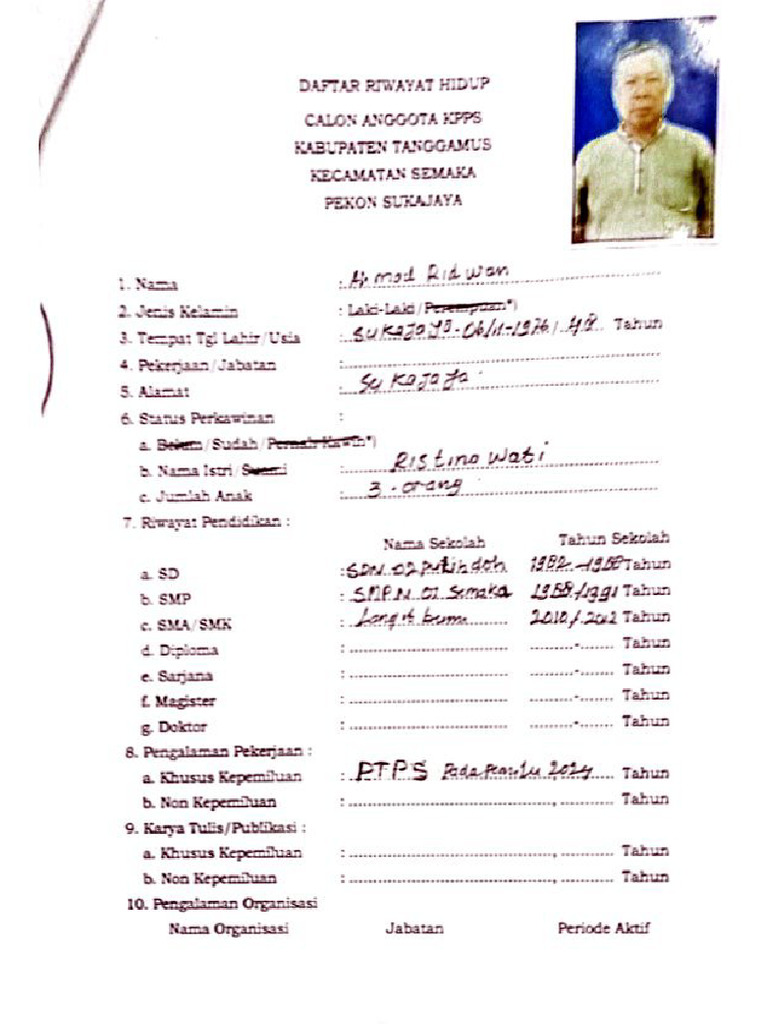 DAFTAR RIWAYAT HIDUP
CALON ANGGOTA KPPS
KABUPATEN TANGGAMUS
KECAMATAN SEMAKA
PEKON SUKAJAYA
1. Nama : Ahmad Ridwan
2. Jenis Kelamin : Laki-Laki/Perempuan*)
3. Tempat Tgl Lahir/Usia : Sukajaya-06/11-1976/48 Tahun
4. Pekerjaan/Jabatan :
5. Alamat : Sukajaya
6. Status Perkawinan :
a. Belum/Sudah/Pernah Kawin*)
b. Nama Istri/Suami : Ristina Wati
c. Jumlah Anak : 3 - orang
7. Riwayat Pendidikan :
Nama Sekolah Tahun Sekolah
a. SD : SDN 02 Putihdoh 1982-1988 Tahun
b. SMP : SMP.N 01 Semaka 1988/1991 Tahun
c. SMA/SMK : 2010/2012 Tahun
d. Diploma : - Tahun
e. Sarjana : - Tahun
f. Magister : - Tahun
g. Doktor : - Tahun
8. Pengalaman Pekerjaan :
a. Khusus Kepemiluan : PTPS Pada Pemilu 2024 Tahun
b. Non Kepemiluan : , Tahun
9. Karya Tulis/Publikasi :
a. Khusus Kepemiluan : , Tahun
b. Non Kepemiluan : , Tahun
10. Pengalaman Organisasi
Nama Organisasi Jabatan Periode Aktif